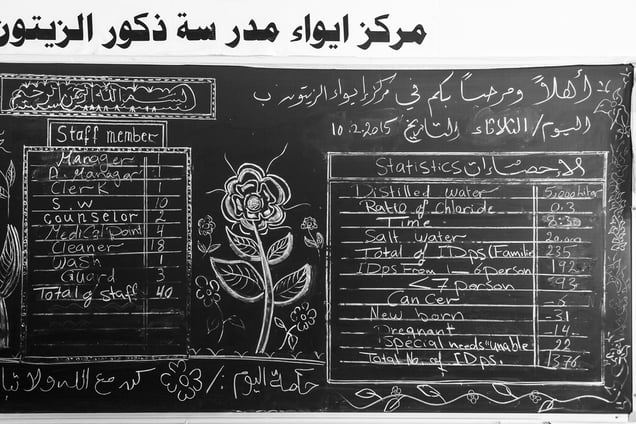 مركز ايواء مدرسة ذكور الزيتون
بسم الله الرحمن الرحيم
أهلاً ومرحباً بكم في مركز ايواء الزيتون ب
اليوم / الثلاثاء التاريخ 10.2.2015
Staff member
Manager 1
A. Manager 1
Clerk 1
S.W 10
counselor 2
Medical Point 4
Cleaner 18
Wash 1
Guard 3
Total of staff 40
Statistics الإحصاءات
Distilled water 5,000 liter
Ratio of Chloride 0.3
Time 8:30
Salt water 20.000
Total of IDps (Familie 235
IDps From 1 - 6 person 192
< 7 person 93
Cancer
New born -31
Pregnant -14
Special needs "unable 22
Total No. of IDps. 1376
حكمة اليوم :/ كن مع الله ولا تبا